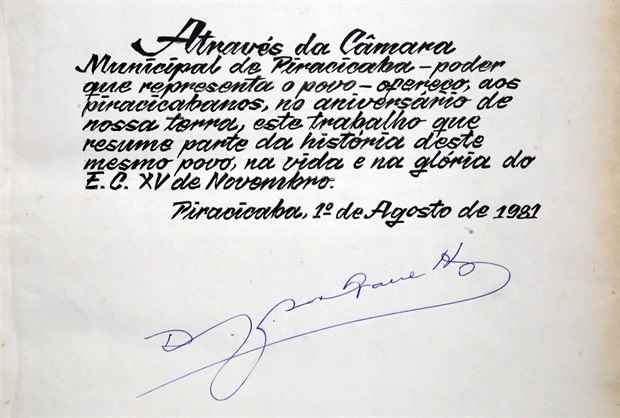 Através da Câmara
Municipal de Piracicaba - poder
que representa o povo - ofereço, aos
piracicabanos, no aniversário de
nossa terra, este trabalho que
resume parte da história deste
mesmo povo, na vida e na glória do
E.C. XV de Novembro.
Piracicaba, 1º de Agosto de 1981